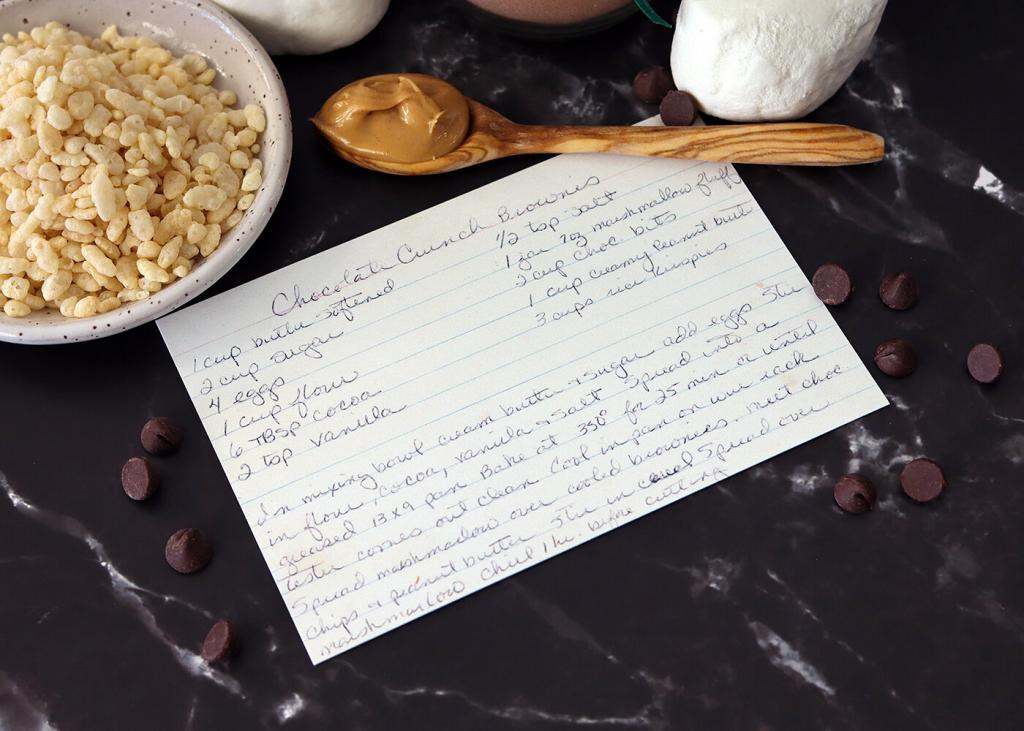 Chocolate Crunch Brownies
1 cup butter softened
2 cup sugar
4 eggs
1 cup flour
6 TBSP cocoa
2 tsp vanilla
1/2 tsp salt
1 jar 7oz marshmallow fluff
2 cup choc bits
1 cup creamy peanut butt
3 cups rice krispies
In mixing bowl cream butter & sugar add eggs Stir
in flour, cocoa, vanilla & salt Spread into a
greased 13x9 pan Bake at 350° for 25 min or until
tester comes out clean Cool in pan on wire rack
Spread marshmallow over cooled brownies. melt choc
chips & peanut butter Stir in cereal Spread over
marshmallow chill 1 hr. before cutting